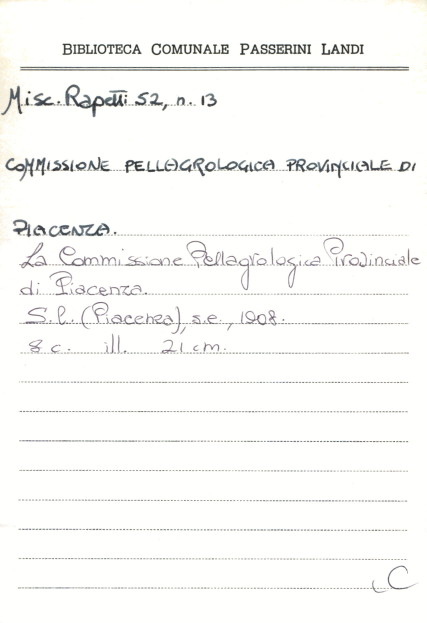 BIBLIOTECA COMUNALE PASSERINI LANDI
Misc. Rapetti 52, n. 13
COMMISSIONE PELLAGROLOGICA PROVINCIALE DI
PIACENZA.
La Commissione Pellagrologica Provinciale
di Piacenza.
S.l. (Piacenza), s.e., 1908.
8 c. ill. 21 cm.
C